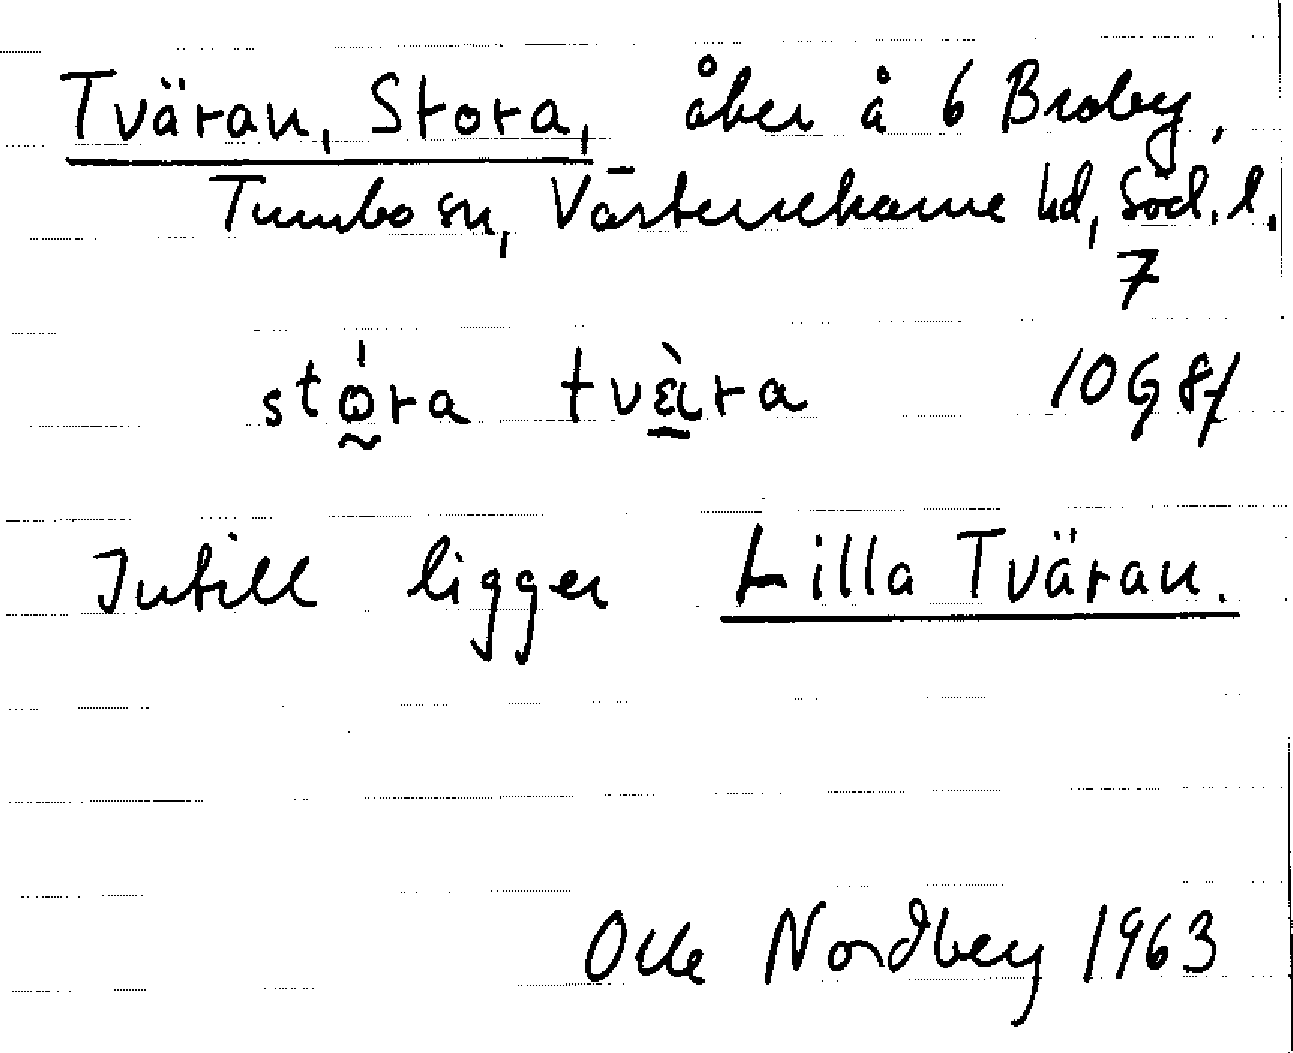 Tväran, Stora, åker å 6 Broby,
Tumbo sn, Västerrekarne hd, Söd. l.
7
stóra tvὲra 10G 8f
Intill ligger Lilla Tväran.
Olle Nordberg 1963